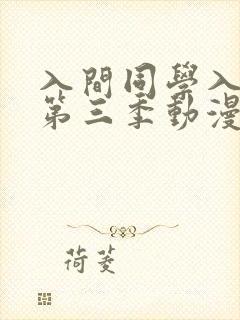 入間同學入
第三季動漫
荷菱